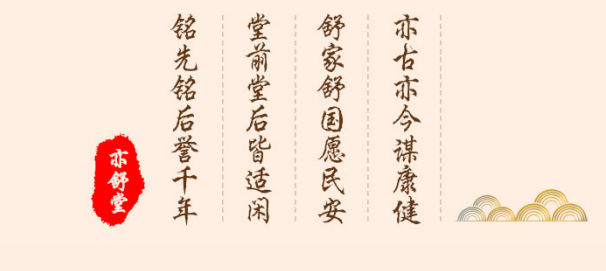 亦古亦今谋康健
舒家舒国愿民安
堂前堂后皆适闲
铭先铭后誉千年
亦舒堂